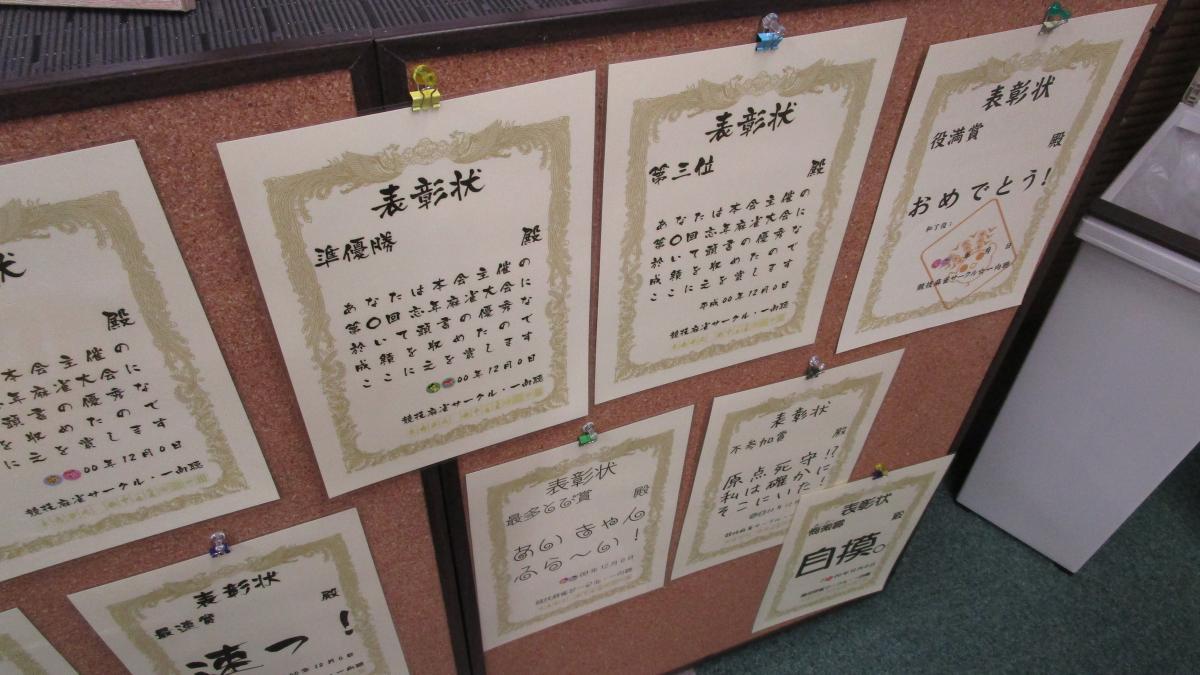 状
殿
本会主催の
年麻雀大会に
頭書の優秀な
を収めたので
に之を賞します
00年12月0日
競技麻雀サークル・一向聴
表彰状
準優勝
殿
あなたは本会主催の
第〇回忘年麻雀大会に
於いて頭書の優秀な
成績を収めたので
ここに之を賞します
00年12月0日
競技麻雀サークル・一向聴
表彰状
第三位
殿
あなたは本会主催の
第〇回忘年麻雀大会に
於いて頭書の優秀な
成績を収めたので
ここに之を賞します
平成00年12月0日
競技麻雀サークル・一向聴
表彰状
役満賞
殿
おめでとう!
和了役:
月 日
競技麻雀サークル・一向聴
表彰状
最速賞
殿
速っ!
年12月0日
一向聴
表彰状
最多とび賞
殿
あい きゃん
ふらーい!
00年12月0日
競技麻雀サークル・一向聴
表彰状
不参加賞
殿
原点死守!?
私は確かに
そこにいた!
競技麻雀サークル
表彰状
殿
自摸。